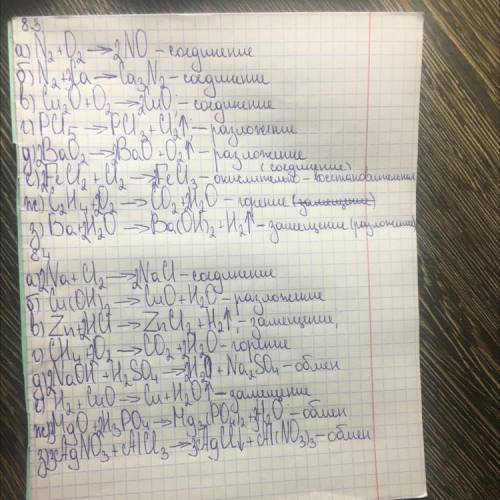 8.3
а) N₂+O₂→2NO - соединение
б) N₂+3Ca→Ca₃N₂ - соединение
в) Cu₂O+O₂→2CuO - соединение
г) PCl₅→PCl₃+Cl₂↑ - разложение
д) 2BaO₂→2BaO+O₂↑ - разложение
(соединение)
е) 2FeCl₂+Cl₂→2FeCl₃ - окислительно-восстановительная
ж) C₂H₄+O₂→CO₂+2H₂O - горение (замещение)
з) Ba+2H₂O→Ba(OH)₂+H₂↑ - замещение (разложение)
8.4
а) 2Na+Cl₂→2NaCl - соединение
б) Cu(OH)₂→CuO+H₂O - разложение
в) Zn+2HCl→ZnCl₂+H₂↑ - замещение,
г) CH₄+O₂→CO₂+2H₂O - горение
д) 2NaOH+H₂SO₄→2H₂O+Na₂SO₄ - обмен
е) H₂+CuO→Cu+H₂O↑ - замещение
ж) 3MgO+2H₃PO₄→Mg₃(PO₄)₂+3H₂O - обмен
з) 3AgNO₃+AlCl₃→3AgCl↓+Al(NO₃)₃ - обмен